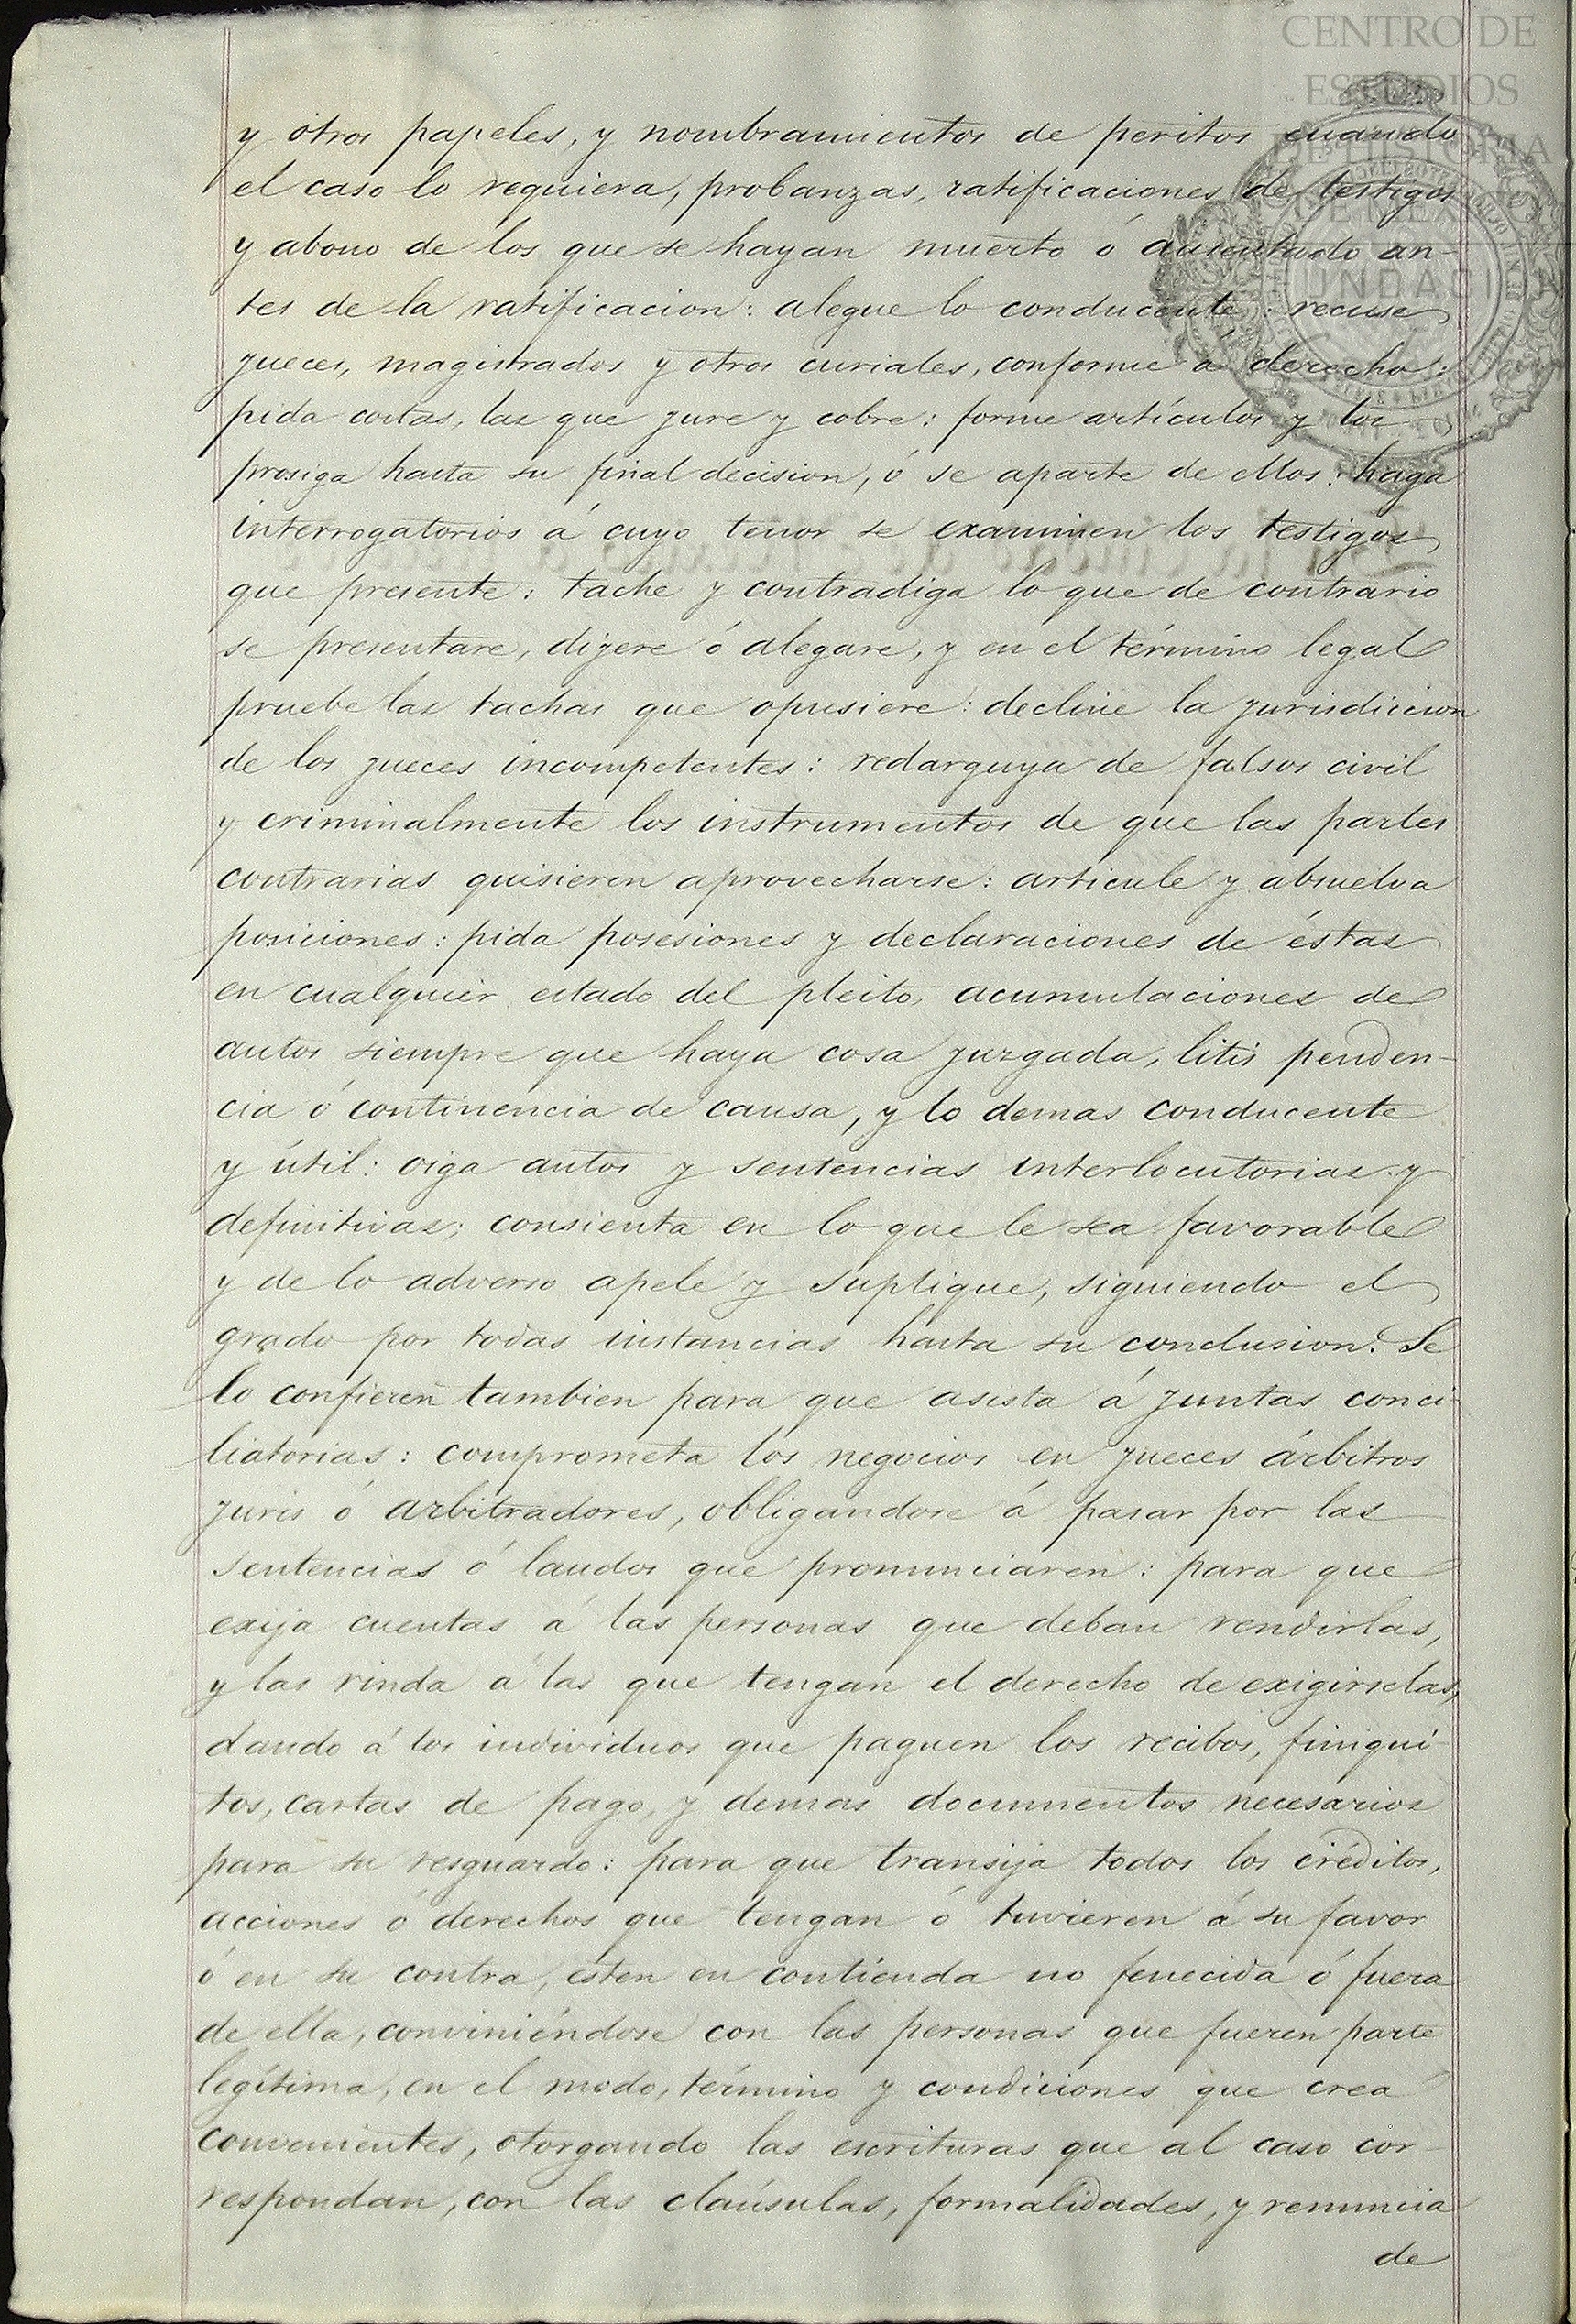 CENTRO DE
ESTUDIOS
DE HISTORIA
DE MEXICO
FUNDACI
y otros papeles, y nombramientos de peritos cuando
el caso lo requiera, probanzas, ratificaciones de testigos
y abono de los que se hayan muerto ó ausentado an-
tes de la ratificacion: alegue lo conducente: recuse
jueces, magistrados y otros curiales, conforme á derecho:
pida costas, las que jure y cobre: forme artículos y los
prosiga hasta su final decision, ó se aparte de ellos: haga
interrogatorios á cuyo tenor se examinen los testigos
que presente: tache y contradiga lo que de contrario
se presentare, dijere ó alegare, y en el término legal
pruebe las tachas que opusiere: decline la jurisdiccion
de los jueces incompetentes: redarguya de falsos civil
y criminalmente los instrumentos de que las partes
contrarias quisieren aprovecharse: articule y absuelva
posiciones: pida posesiones y declaraciones de éstas
en cualquier estado del pleito, acumulaciones de
autos siempre que haya cosa juzgada, litis penden-
cia ó continencia de causa, y lo demas conducente
y útil: oiga autos y sentencias interlocutorias y
definitivas; consienta en lo que le sea favorable
y de lo adverso apele y suplique, siguiendo el
grado por todas instancias hasta su conclusion. Se
lo confieren tambien para que asista á juntas conci-
liatorias: comprometa los negocios en jueces árbitros
juris ó arbitradores, obligandose á pasar por las
sentencias ó laudos que pronunciaren: para que
exija cuentas á las personas que deban rendirlas,
y las rinda á las que tengan el derecho de exigirselas,
dando á los individuos que paguen los recibos, finiqui-
tos, cartas de pago, y demas documentos necesarios
para su resguardo: para que transija todos los créditos,
acciones ó derechos que tengan ó tuvieren á su favor
ó en su contra, esten en contienda no fenecida ó fuera
de ella, conviniéndose con las personas que fueren parte
legítima, en el modo, término y condiciones que crea
convenientes, otorgando las escrituras que al caso cor-
respondan, con las claúsulas, formalidades, y renuncia
de